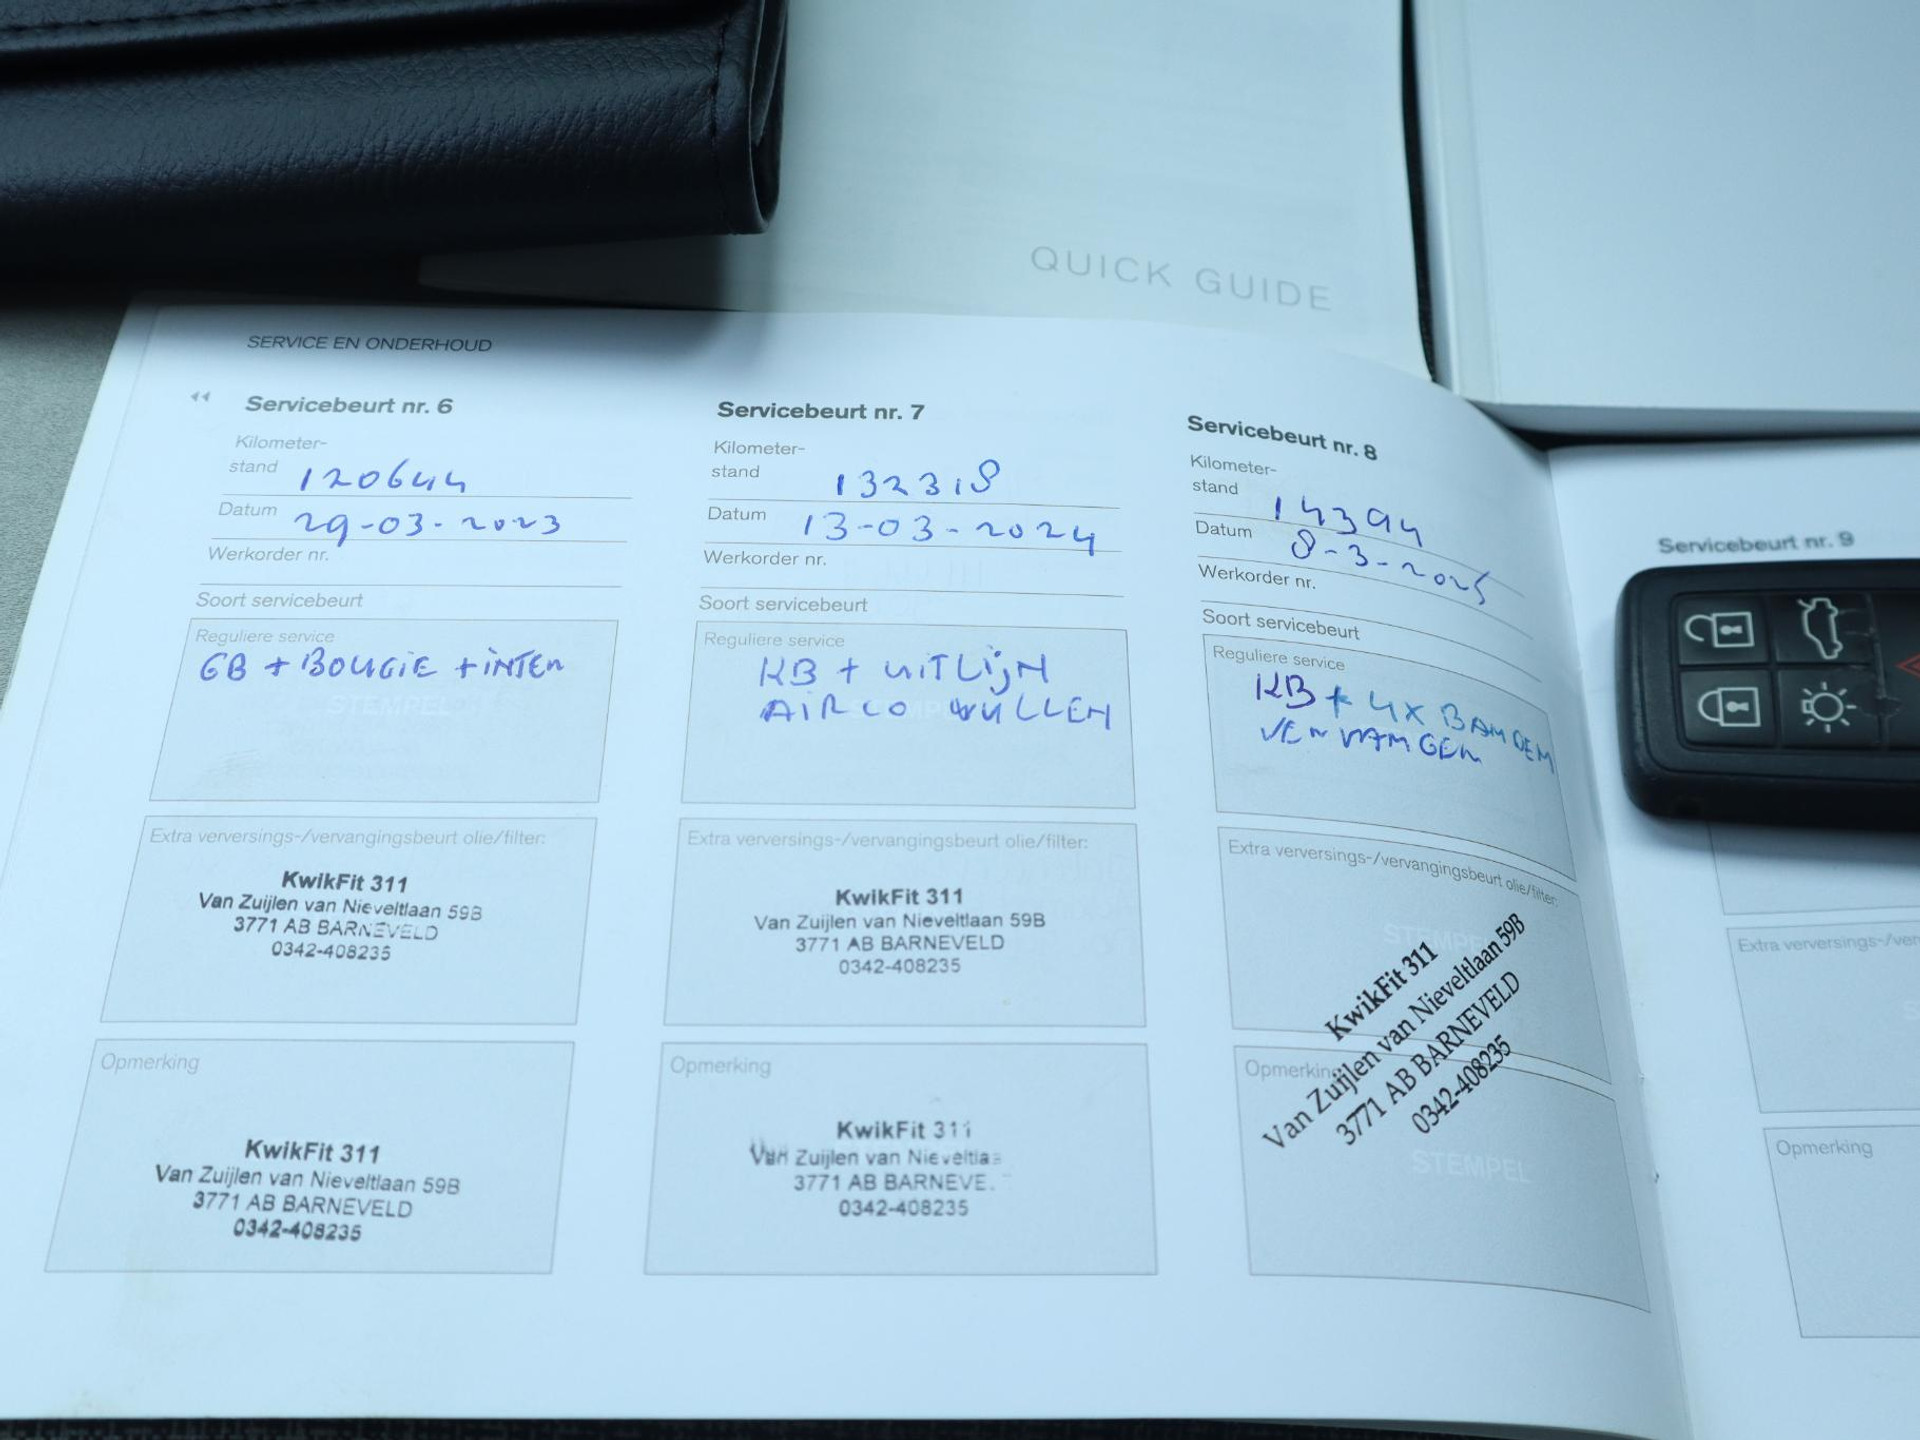 QUICK GUIDE
SERVICE EN ONDERHOUD
Servicebeurt nr. 6
Kilometer-
stand 120644
Datum 29-03-2023
Werkorder nr.
Soort servicebeurt
Reguliere service
GB + BOUGIE + INTER
STEMPEL
Extra verversings-/vervangingsbeurt olie/filter:
KwikFit 311
Van Zuijlen van Nieveltlaan 59B
3771 AB BARNEVELD
0342-408235
Opmerking
KwikFit 311
Van Zuijlen van Nieveltlaan 59B
3771 AB BARNEVELD
0342-408235
Servicebeurt nr. 7
Kilometer-
stand 132318
Datum 13-03-2024
Werkorder nr.
Soort servicebeurt
Reguliere service
KB + UITLIJN
AIRCO VULLEN
Extra verversings-/vervangingsbeurt olie/filter:
KwikFit 311
Van Zuijlen van Nieveltlaan 59B
3771 AB BARNEVELD
0342-408235
Opmerking
KwikFit 311
Van Zuijlen van Nieveltlaa
3771 AB BARNEVE
0342-408235
Servicebeurt nr. 8
Kilometer-
stand 14394
Datum 8-3-2025
Werkorder nr.
Soort servicebeurt
Reguliere service
KB + 4X BANDEN
VERVANGEN
Extra verversings-/vervangingsbeurt olie/filter:
STEMPEL
KwikFit 311
Van Zuijlen van Nieveltlaan 59B
3771 AB BARNEVELD
0342-408235
Opmerking
STEMPEL
Servicebeurt nr. 9
Extra verversings-/ver
Opmerking